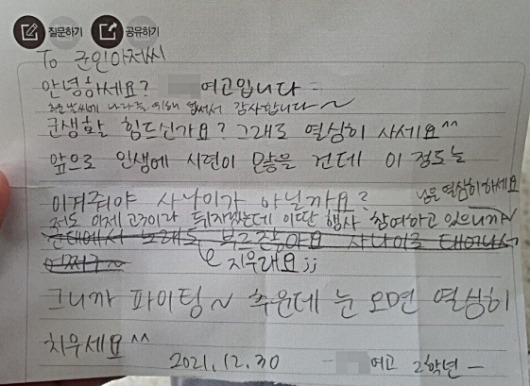 질문하기 공유하기
To 군인아저씨
안녕하세요? 여고입니다
추운날씨에 나라를 위해 힘써서 감사합니다~
군생활 힘드신가요? 그래도 열심히 사세요^^
앞으로 인생에 시련이 많을 건데 이 정도는
이겨줘야 사나이가 아닐까요?
저도 이제 고3이라 뒤지겠는데 이딴 행사 참여하고 있으니까~
님은 열심히하세요
군대에서 노래도 부르잖아요 사나이로 태어나서
어쩌구~
지우래요;;
그니까 파이팅~ 추운데 눈 오면 열심히
치우세요^^
2021.12.30 - 여고 2학년 -